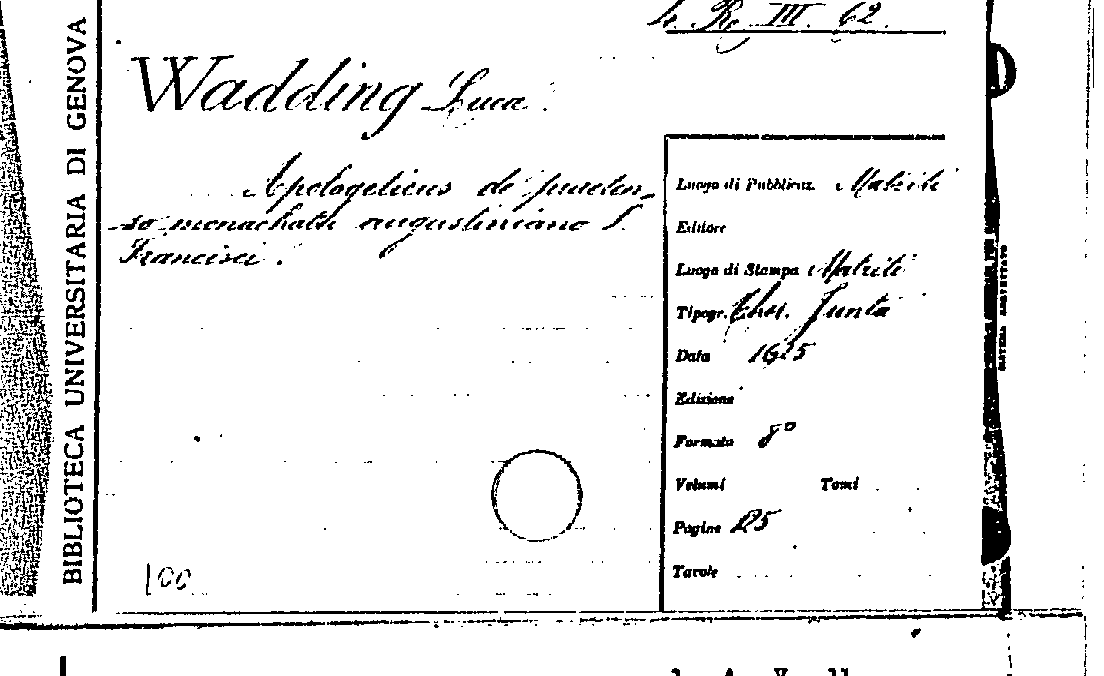 BIBLIOTECA UNIVERSITARIA DI GENOVA
R. III. 62
Wadding Luca.
Apologeticus de praeten-
so monachatu augustiniano S.
Francisci.
Luogo di Pubblicaz. Matriti
Editore
Luogo di Stampa Matriti
Tipogr. Junta
Data 1625
Edizione
Formato 8°
Volumi Tomi
Pagine 125
Tavole
100